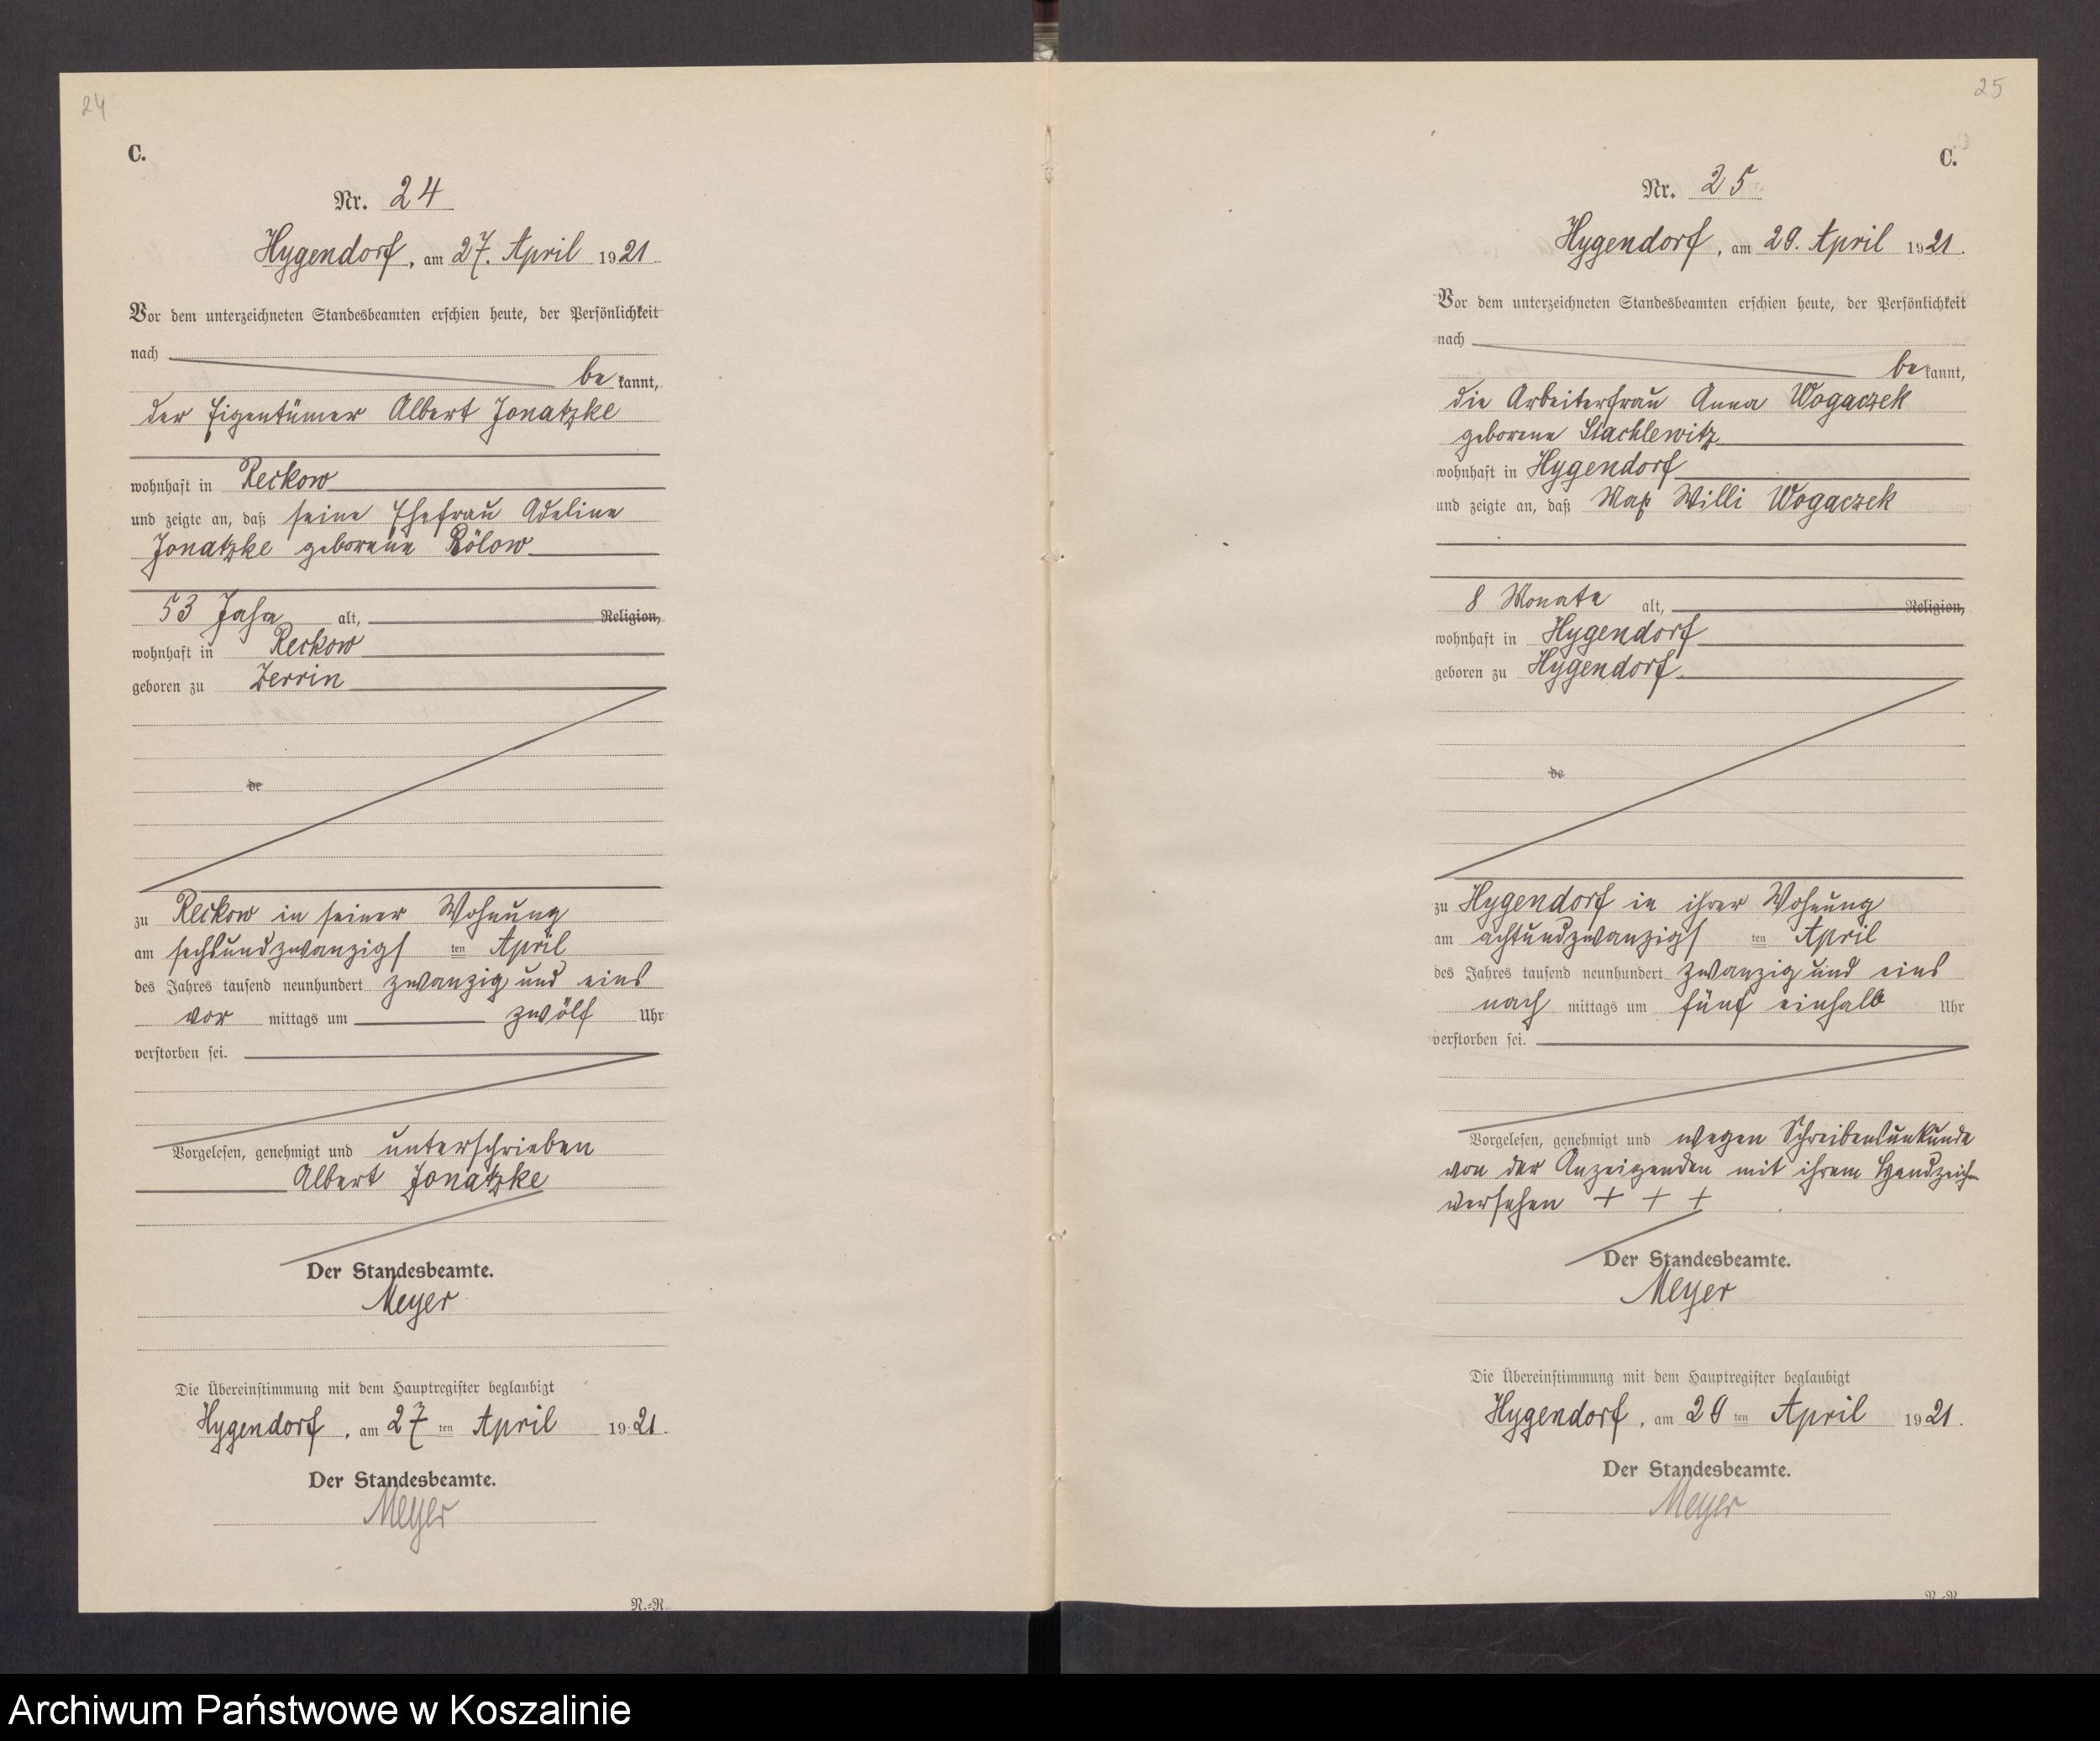 24
C.
Nr. 24
Hygendorf, am 27. April 1921
Vor dem unterzeichneten Standesbeamten erschien heute, der Persönlichkeit
nach
be kannt,
der Eigentümer Albert Jonatzke
wohnhaft in Reckow
und zeigte an, daß seine Ehefrau Adeline
Jonatzke geborene Rölow
53 Jahre alt, Religion,
wohnhaft in Reckow
geboren zu Zerrin
de
zu Reckow in seiner Wohnung
am sechsundzwanzigs ten April
des Jahres tausend neunhundert zwanzig und eins
vor mittags um zwölf Uhr
verstorben sei.
Vorgelesen, genehmigt und unterschrieben
Albert Jonatzke
Der Standesbeamte.
Meyer
Die Übereinstimmung mit dem Hauptregister beglaubigt
Hygendorf, am 27 ten April 1921.
Der Standesbeamte.
Meyer
N.-R.
25
C.
Nr. 25
Hygendorf, am 29. April 1921.
Vor dem unterzeichneten Standesbeamten erschien heute, der Persönlichkeit
nach
be kannt,
die Arbeiterfrau Anna Wogaczek
geborene Stachlewitz
wohnhaft in Hygendorf
und zeigte an, daß Max Willi Wogaczek
8 Monate alt, Religion,
wohnhaft in Hygendorf
geboren zu Hygendorf
de
zu Hygendorf in ihrer Wohnung
am achtundzwanzigs ten April
des Jahres tausend neunhundert zwanzig und eins
nach mittags um fünf einhalb Uhr
verstorben sei.
Vorgelesen, genehmigt und wegen Schreibensunkunde
von der Anzeigenden mit ihrem Handzeichen
versehen + + +
Der Standesbeamte.
Meyer
Die Übereinstimmung mit dem Hauptregister beglaubigt
Hygendorf, am 29 ten April 1921.
Der Standesbeamte.
Meyer
N.-R.
Archiwum Państwowe w Koszalinie